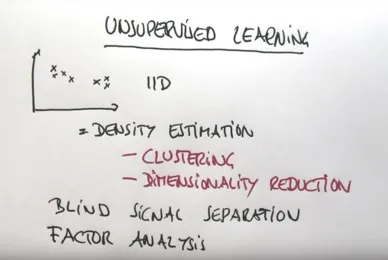 UNSUPERVISED LEARNING
IID
= DENSITY ESTIMATION
- CLUSTERING
- DIMENSIONALITY REDUCTION
BLIND SIGNAL SEPARATION
FACTOR ANALYSIS